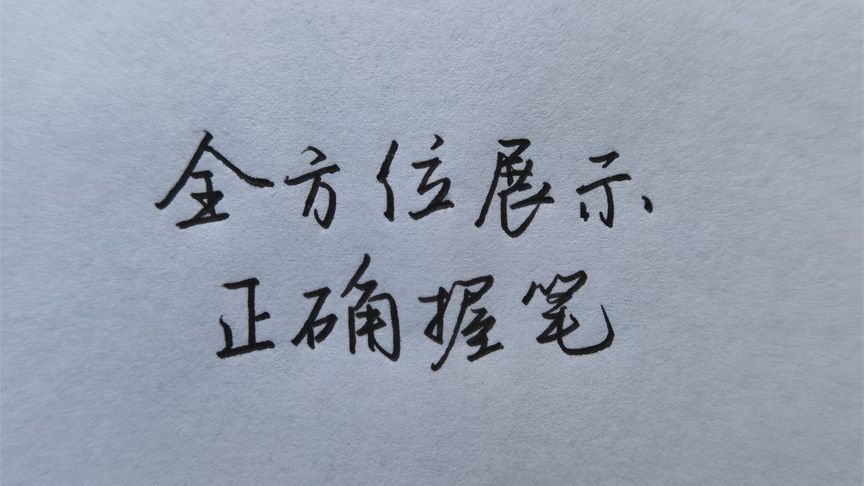 全方位展示
正确握笔